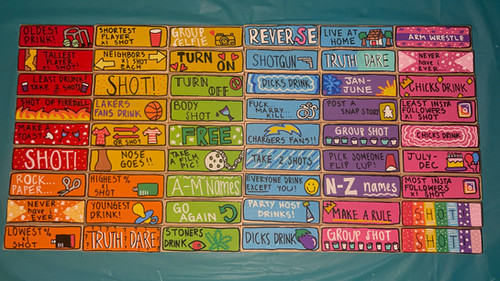 OLDEST
DRINK!
SHORTEST
PLAYER
x1 SHOT
GROUP
SELFIE
REVERSE
LIVE AT
HOME
ARM WRESTLE
TALLEST
PLAYER
x1 SHOT
NEIGHBORS
x1 SHOT
EACH
TURN
ON
SHOTGUN
TRUTH DARE
NEVER
HAVE I
EVER
LEAST DRUNK?
TAKE 2 SHOTS
SHOT!
TURN
OFF
DICKS DRINK
JAN-
JUNE
CHICKS DRINK
SHOT OF FIREBALL
LAKERS
FANS DRINK
BODY
SHOT
FUCK
MARRY
KILL...
POST A
SNAP STORY
LEAST INSTA
FOLLOWERS
x1 SHOT
MAKE A
TOAST
OR
SHOT OR SHOT
FREE
CHARGERS FANS!!
GROUP SHOT
CHICKS DRINK
SHOT!
NOSE
GOES!!
TAKE A
FILM PIC!
TAKE 2 SHOTS
PICK SOMEONE
FLIP CUP!
JULY-
DEC.
ROCK...
PAPER...
HIGHEST %
x1 SHOT
A-M Names
EVERYONE DRINK
EXCEPT YOU!
N-Z names
MOST INSTA
FOLLOWERS
x1 SHOT
NEVER
HAVE I
EVER
YOUNGEST
DRINK!
GO
AGAIN
PARTY HOST
DRINKS!
MAKE A RULE
SHOT
LOWEST %
x1 SHOT
TRUTH DARE
STONERS
DRINK
DICKS DRINK
GROUP SHOT
SHOT